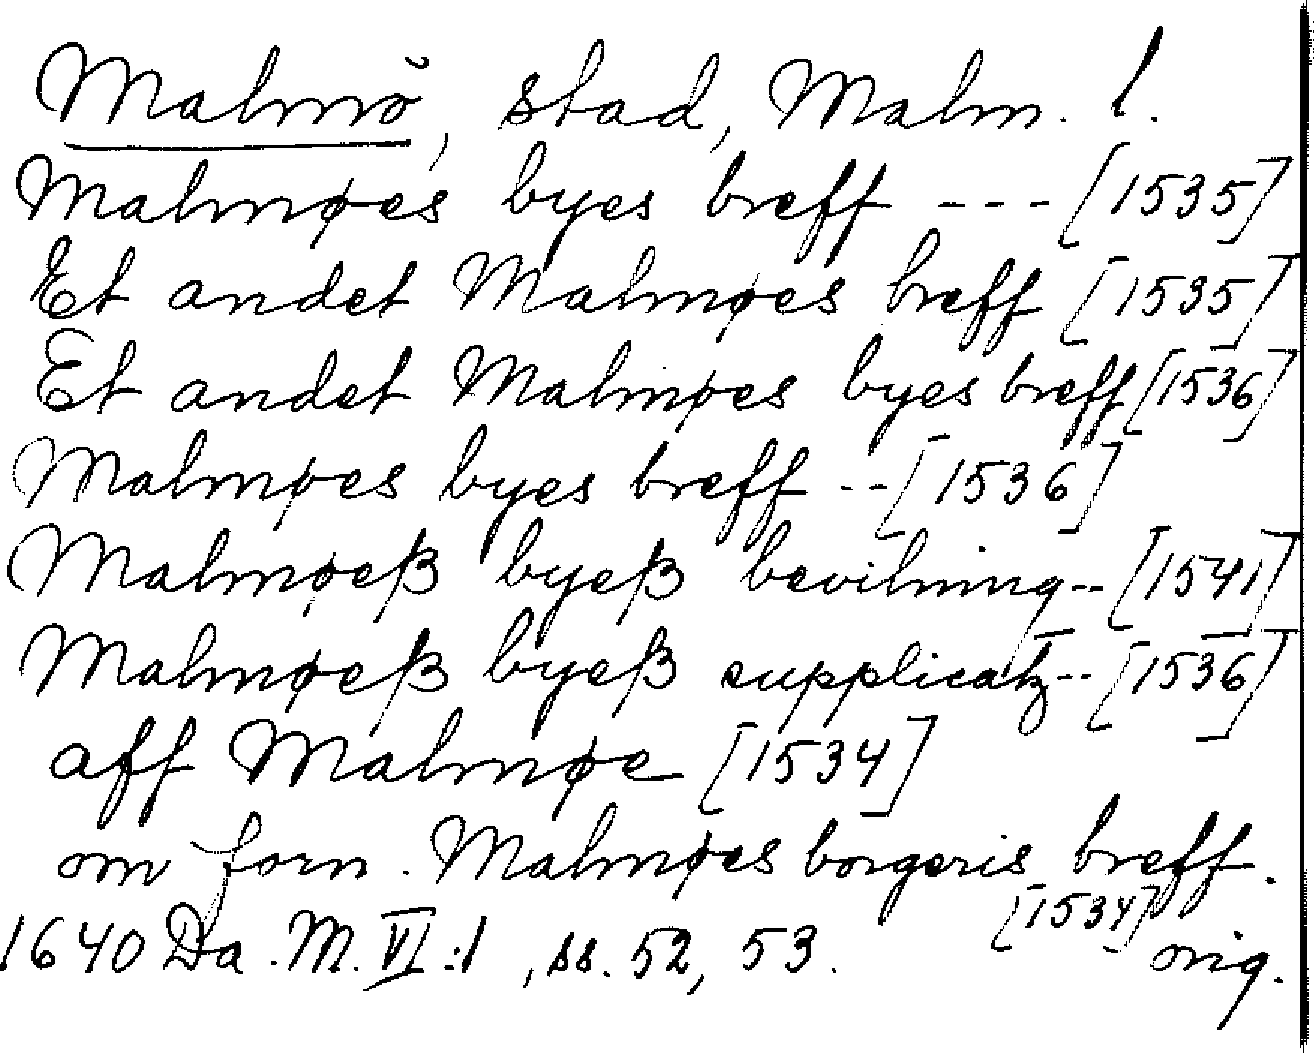 Malmö, stad, Malm. l.
Malmøes byes breff --- [1535]
Et andet Malmøes breff [1535]
Et andet Malmøes byes breff [1536]
Malmøes byes breff -- [1536]
Malmøeß byeß bevilning -- [1541]
Malmøeß byeß supplicatz -- [1536]
aff Malmøe [1534]
om forn. Malmøes borgeris breff.
[1534]
1640 Da. M. VI:1, ss. 52, 53. orig.